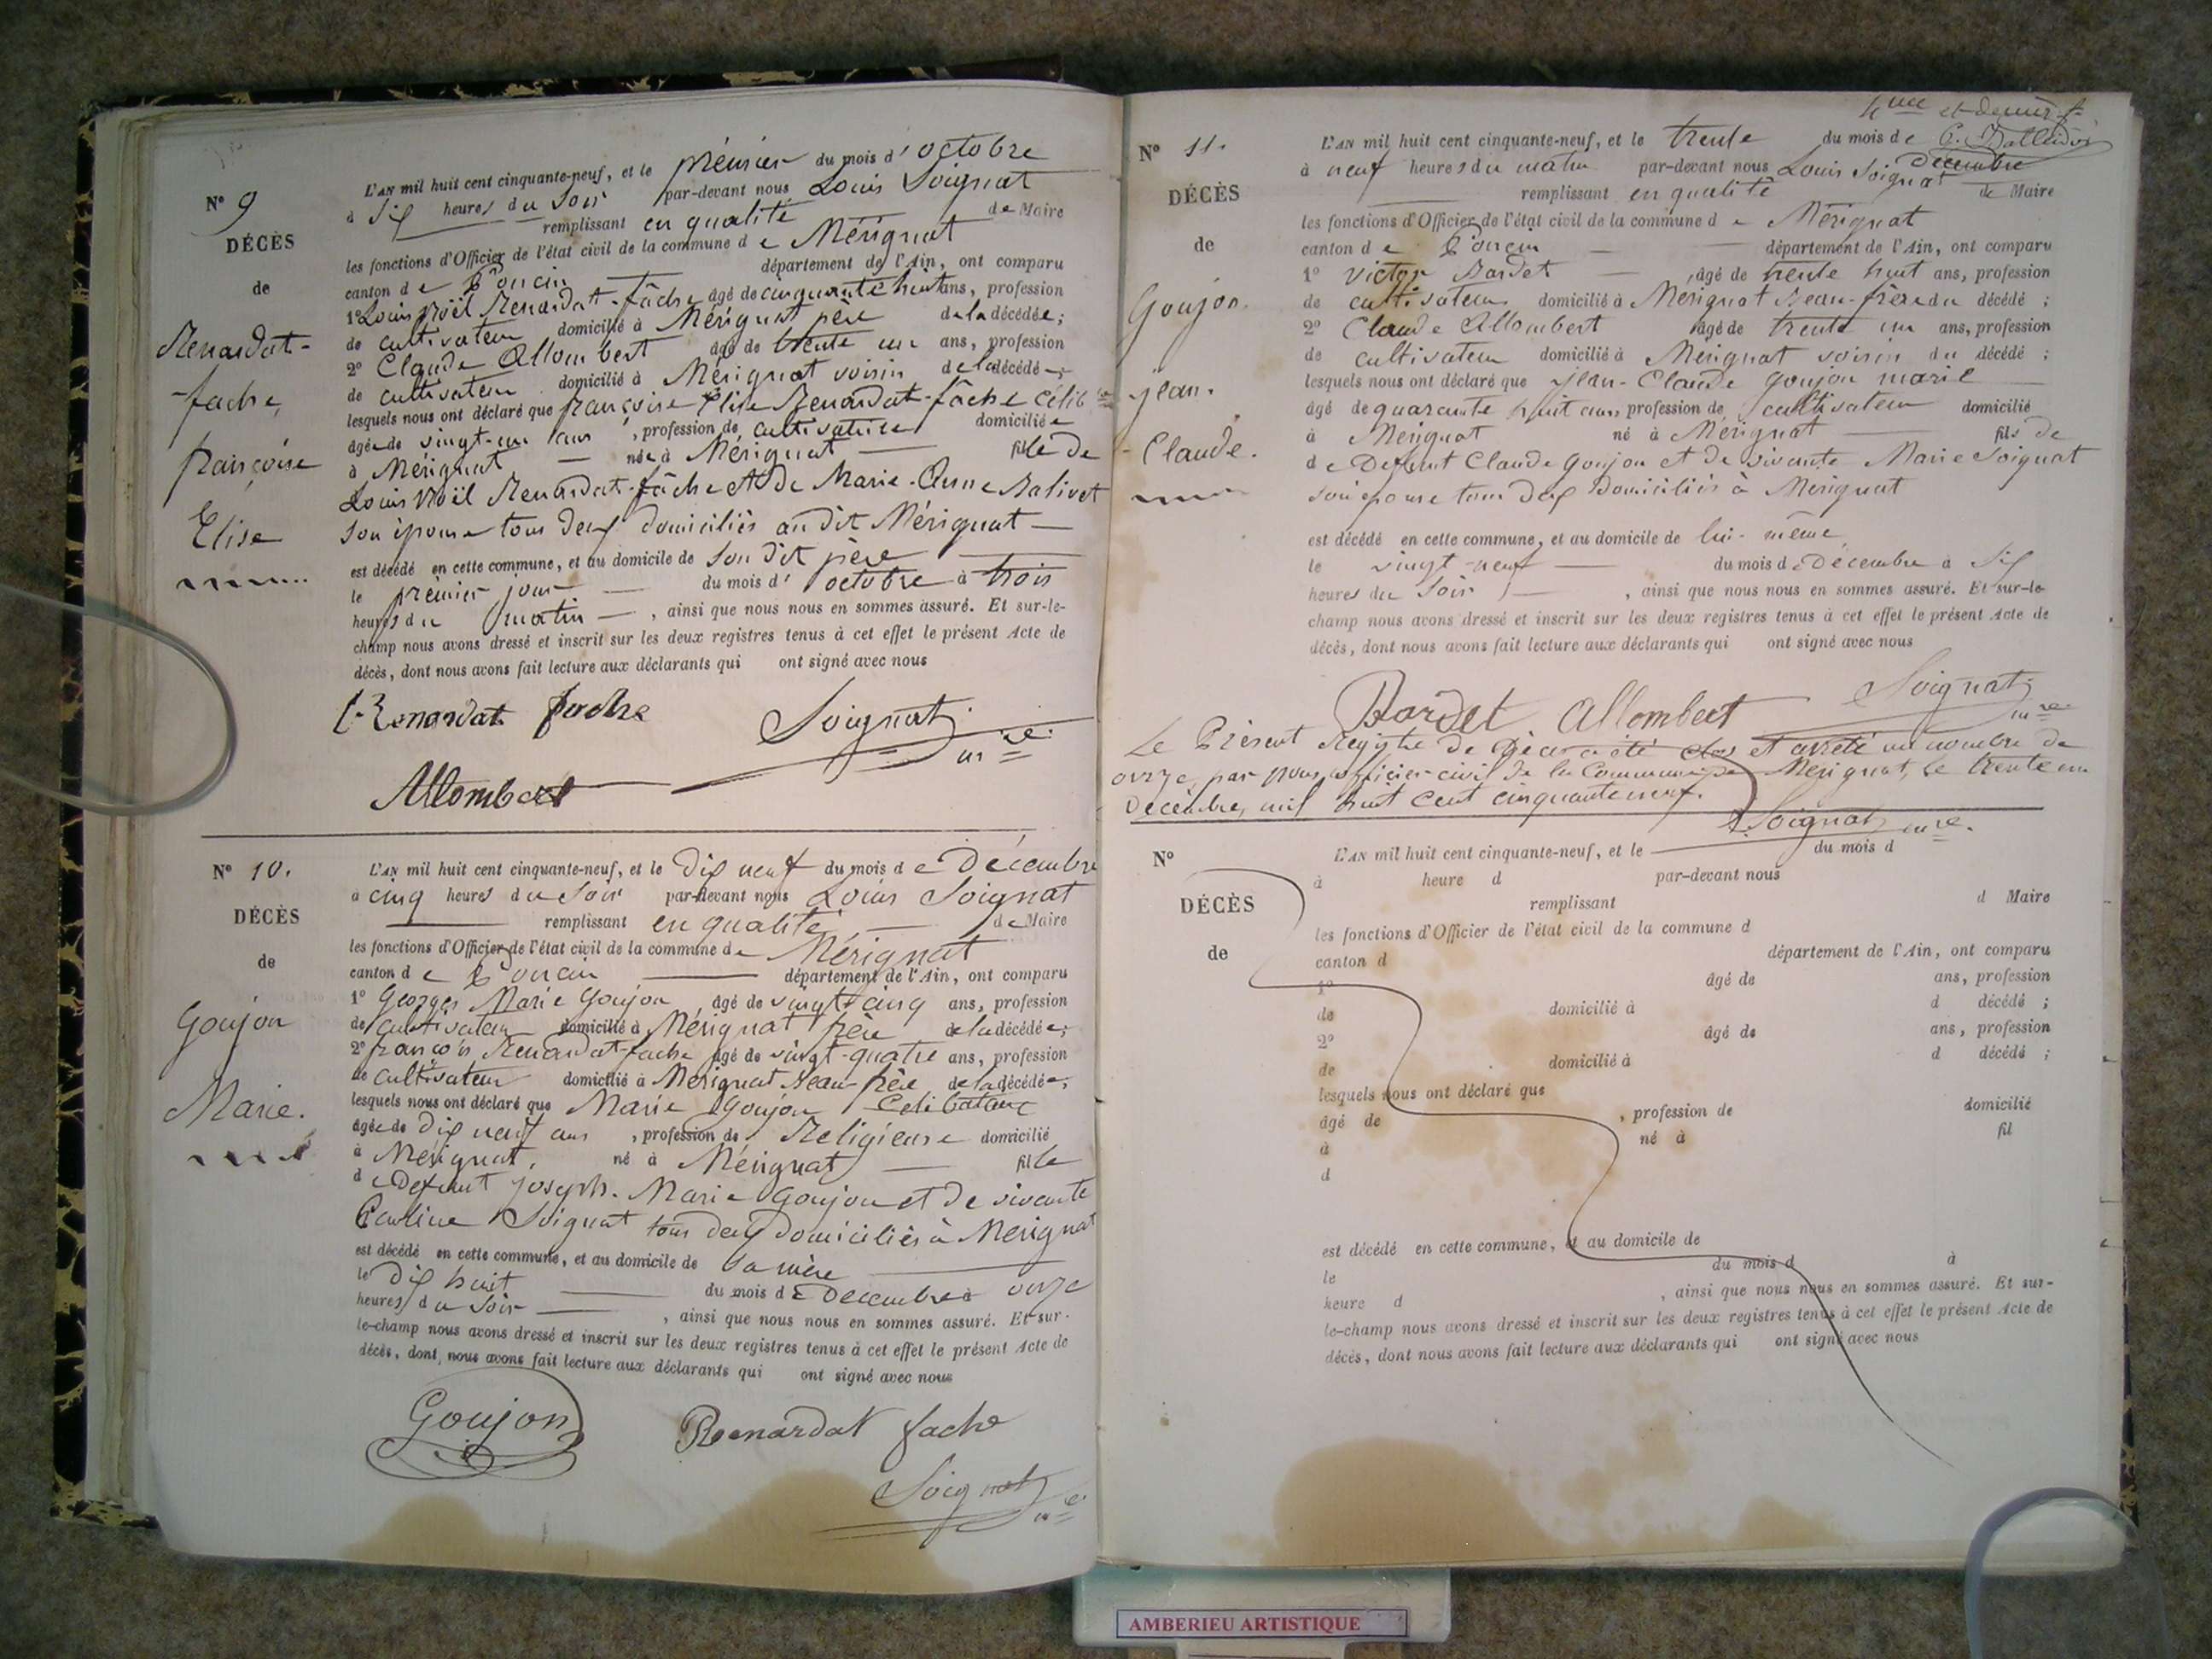 N° 9
DÉCÈS
de
Renardat-
fache,
françoise
Élise
L'AN mil huit cent cinquante-neuf, et le prémier du mois d'octobre
à six heures du soir par-devant nous Louis Soignat
remplissant en qualité de Maire
les fonctions d'Officier de l'état civil de la commune de Mérignat
canton de Poncin département de l'Ain, ont comparu
1° Louis Noël Renardat-fâche âgé de cinquante huit ans, profession
de cultivateur domicilié à Mérignat père de la décédée;
2° Claude Allombert âgé de trente un ans, profession
de cultivateur domicilié à Mérignat voisin de la décédé-;
lesquels nous ont déclaré que françoise Élise Renardat-fâche célib
âgée de vingt-un ans, profession de cultivatrice domiciliée
à Mérignat née à Mérignat fille de
Louis Noël Renardat-fâche et de Marie-Anne Balivet
son épouse tous deux domiciliés au dit Mérignat
est décédé en cette commune, et au domicile de son dit père
le prémier jour du mois d'octobre à trois
heures du matin, ainsi que nous nous en sommes assuré. Et sur-le-
champ nous avons dressé et inscrit sur les deux registres tenus à cet effet le présent Acte de
décès, dont nous avons fait lecture aux déclarants qui ont signé avec nous
Renardat fache Soignat mre
Allombert
N° 10.
DÉCÈS
de
Goujon
Marie.
L'AN mil huit cent cinquante-neuf, et le dix neuf du mois de Décembre
à cinq heures du soir par-devant nous Louis Soignat
remplissant en qualité de Maire
les fonctions d'Officier de l'état civil de la commune de Mérignat
canton de Poncin département de l'Ain, ont comparu
1° Georges Marie Goujon âgé de vingt-cinq ans, profession
de cultivateur domicilié à Mérignat frère de la décédée;
2° françois Renardat-fache âgé de vingt-quatre ans, profession
de cultivateur domicilié à Mérignat Beau-frère de la décédée,
lesquels nous ont déclaré que Marie Goujon Celibataire
âgée de dix neuf ans, profession de Religieuse domicilié
à Mérignat, né à Mérignat fille
de Defunt joseph-Marie Goujon et de vivante
Soignat tous deux domiciliés à Mérignat
est décédé en cette commune, et au domicile de sa mère
le dix huit du mois de Décembre à onze
heures du soir, ainsi que nous nous en sommes assuré. Et sur-
le-champ nous avons dressé et inscrit sur les deux registres tenus à cet effet le présent Acte de
décès, dont nous avons fait lecture aux déclarants qui ont signé avec nous
Goujon Renardat fache
Soignat mre
et dernier
N° 11.
DÉCÈS
de
Goujon.
jean.
Claude.
L'AN mil huit cent cinquante-neuf, et le trente du mois de
décembre
à neuf heures du matin par-devant nous Louis Soignat
remplissant en qualité de Maire
les fonctions d'Officier de l'état civil de la commune de Mérignat
canton de Poncin département de l'Ain, ont comparu
1° Victor Bardet, âgé de trente huit ans, profession
de cultivateur domicilié à Mérignat Beau-frère du décédé;
2° Claude Allombert âgé de trente un ans, profession
de cultivateur domicilié à Mérignat voisin du décédé;
lesquels nous ont déclaré que jean-Claude Goujon marié
âgé de quarante huit ans profession de cultivateur domicilié
à Mérignat né à Mérignat fils de
de Defunt Claude Goujon et de vivante Marie Soignat
son épouse tous deux Domiciliés à Mérignat
est décédé en cette commune, et au domicile de lui-même
le vingt-neuf du mois de Décembre à six
heures du soir, ainsi que nous nous en sommes assuré. Et sur-le-
champ nous avons dressé et inscrit sur les deux registres tenus à cet effet le présent Acte de
décès, dont nous avons fait lecture aux déclarants qui ont signé avec nous
Bardet Allombert Soignat mre
Le Présent Registre de Décès a été clos et arrêté au nombre de
onze, par nous officier civil de la Commune de Mérignat, le trente un
Décembre, mil huit cent cinquante neuf.
Soignat mre.
N°
DÉCÈS
de
L'AN mil huit cent cinquante-neuf, et le du mois d
à heure d par-devant nous
remplissant d Maire
les fonctions d'Officier de l'état civil de la commune d
canton d département de l'Ain, ont comparu
1° âgé de ans, profession
de domicilié à d décédé ;
2° âgé de ans, profession
de domicilié à d décédé ;
lesquels nous ont déclaré que
âgé de , profession de domicilié
à né à fil
d
est décédé en cette commune, et au domicile de
le du mois d à
heure d , ainsi que nous nous en sommes assuré. Et sur-
le-champ nous avons dressé et inscrit sur les deux registres tenus à cet effet le présent Acte de
décès, dont nous avons fait lecture aux déclarants qui ont signé avec nous
AMBERIEU ARTISTIQUE